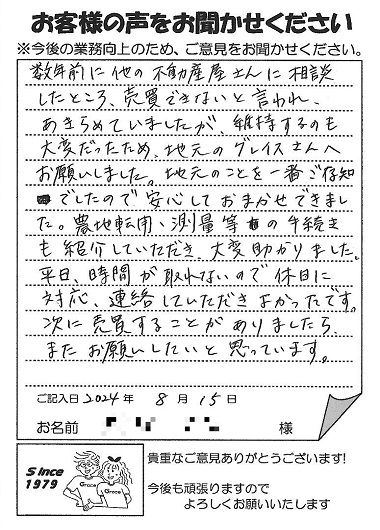 お客様の声をお聞かせください
※今後の業務向上のため、ご意見をお聞かせください。
数年前に他の不動産屋さんに相談
したところ、売買できないと言われ、
あきらめていましたが、維持するのも
大変だったため、地元のグレイスさんへ
お願いしました。地元のことを一番ご存知
でしたので安心しておまかせできまし
た。農地転用、測量等の手続き
も紹介していただき、大変助かりました。
平日、時間が取れないので休日に
対応、連絡していただきよかったです。
次に売買することがありましたら、
またお願いしたいと思っています。
ご記入日 2024 年 8 月 15 日
お名前 様
Since
1979
Grace
Grace
貴重なご意見ありがとうございます!
今後も頑張りますので
よろしくお願いいたします